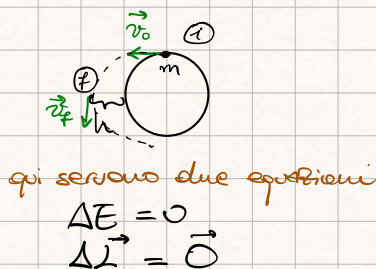 v₀ i
m
f
v_f h
qui servono due equazioni
ΔE = 0
ΔL = 0